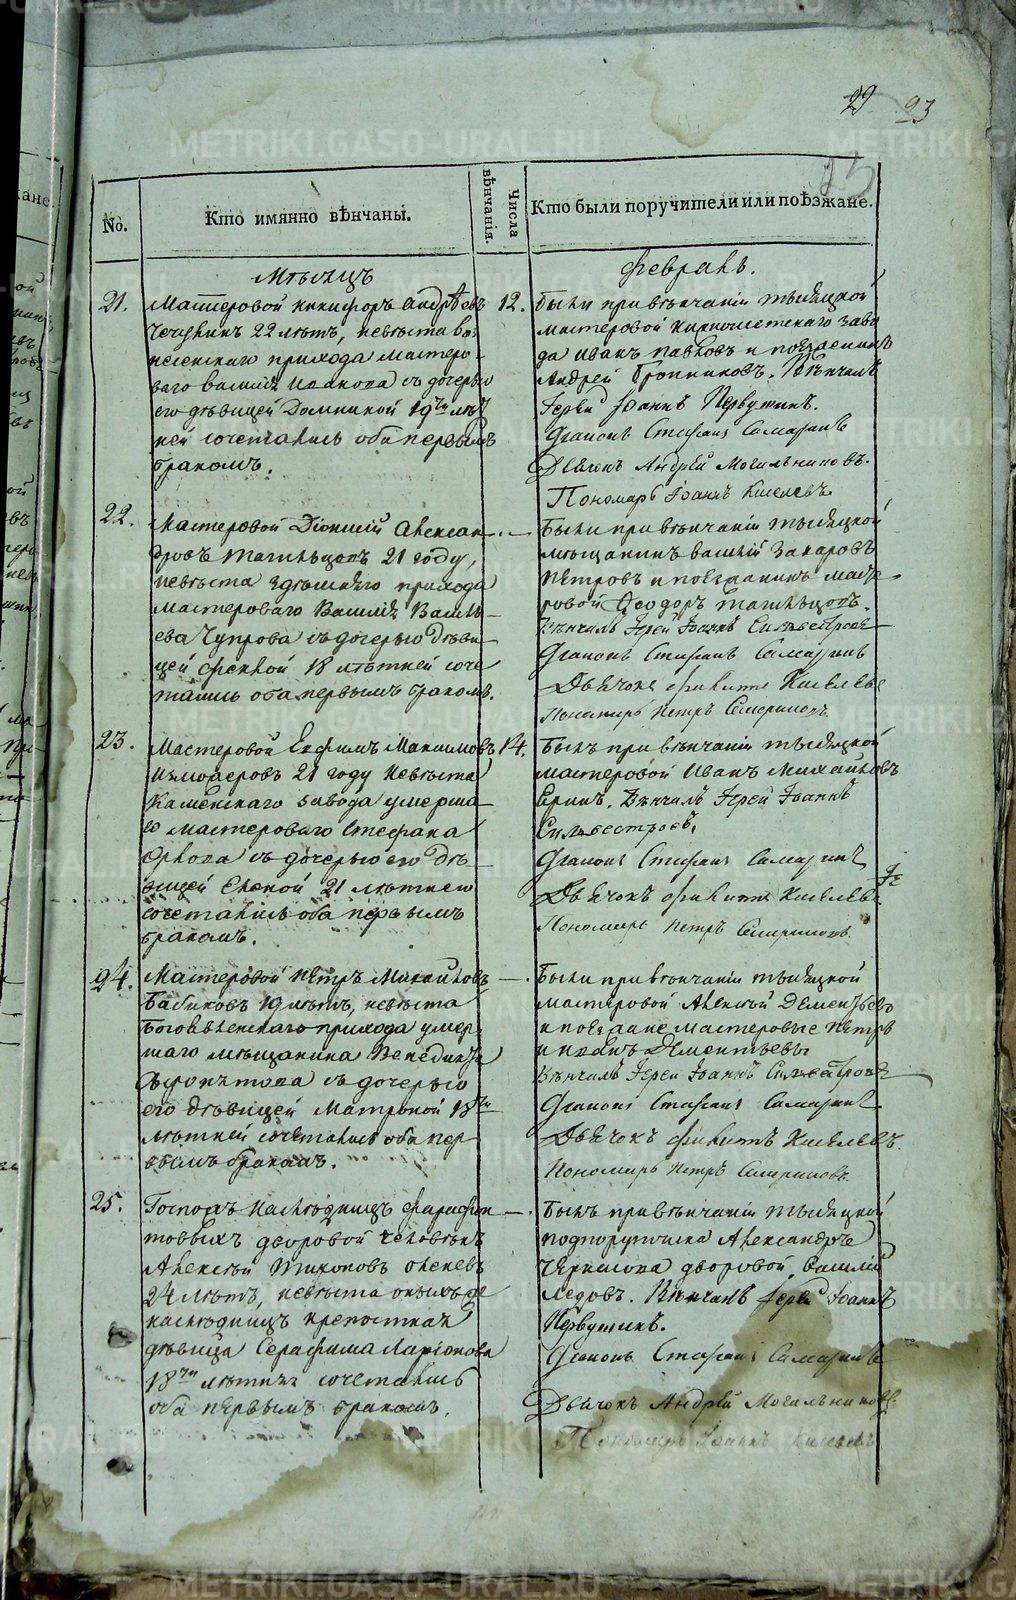 29 23
23
No.
Кто имянно вѣнчаны.
Числа вѣнчанія.
Кто были поручители или поѣзжане.
Мѣсяцъ
Февраль.
21.
Мастеровой Никифоръ Андрѣевъ
22 лѣтъ, невѣста
прихода мастеро-
ваго Василія Иванова съ дочерью
его дѣвицей Домникой 19ти лѣт
ней сочетались оба первымъ
бракомъ.
12.
Были при вѣнчаніи тысяцкой
мастеровой заво
да Иванъ Павловъ и поезжанинъ
Андрей Бронниковъ. Вѣнчалъ
Іерей Іоаннъ Первушинъ.
Диаконъ Стефанъ Самаринъ
Дьячокъ Андрей Могильниковъ.
Пономарь Іоаннъ Киселевъ
22.
Мастеровой Діонисій Алексан
дровъ Тагильцовъ 21 году,
невѣста здѣшнего прихода
мастероваго Василія Василь-
ева Чупрова съ дочерью дѣви-
цей Феклой 18 лѣтней соче
тались оба первымъ бракомъ.
Были при вѣнчаніи тысяцкой
мѣщанинъ Василій Захаровъ
Петровъ и поезжанинъ масте-
ровой Феодоръ Тагильцовъ.
Вѣнчалъ Іерей Іоаннъ Сильвестровъ
Диаконъ Стефанъ Самаринъ
Дьячокъ Филиппъ Киселевъ
Пономарь Петръ Смирновъ
23.
Мастеровой Ефимъ Максимовъ
21 году невѣста
Каменскаго завода умерша-
го мастероваго Стефана
Орлова съ дочерью его дѣ-
вицей Еленой 21 лѣтнею
сочетались оба первымъ
бракомъ.
14.
Былъ при вѣнчаніи тысяцкой
мастеровой Иванъ Михайловъ
Вѣнчалъ Іерей Іоаннъ
Сильвестровъ.
Диаконъ Стефанъ Самаринъ
Дьячокъ Филиппъ Киселевъ
Пономарь Петръ Смирновъ
24.
Мастеровой Петръ Михайловъ
Бабиковъ 19 лѣтъ, невѣста
Богоявленскаго прихода умер-
шаго мѣщанина Венедикта
съ дочерью
его дѣвицей Матроной 18ти
лѣтней сочетались оба пер
вымъ бракомъ.
Были при вѣнчаніи тысяцкой
мастеровой Алексѣй Дементьевъ
и поезжане мастеровые Петръ
и Иванъ Дементьевы
Вѣнчалъ Іерей Іоаннъ Сильвестровъ
Диаконъ Стефанъ Самаринъ
Дьячокъ Филиппъ Киселевъ.
Пономарь Петръ Смирновъ.
25.
Господъ наслѣдницъ Фарафон
товыхъ дворовой человѣкъ
Алексѣй Тихоновъ
24 лѣтъ, невѣста
наслѣдницъ крепостная
дѣвица Серафима Ларіонова
18ти лѣтняя сочетались
оба первымъ бракомъ.
Былъ при вѣнчаніи тысяцкой
подпоручика Александра
Черкасова дворовой Василій
Ледовъ. Вѣнчалъ Іерей Іоаннъ
Первушинъ.
Диаконъ Стефанъ Самаринъ
Дьячокъ Андрей Могильниковъ
Пономарь Іоаннъ Киселевъ
METRIKI.GASO-URAL.RU